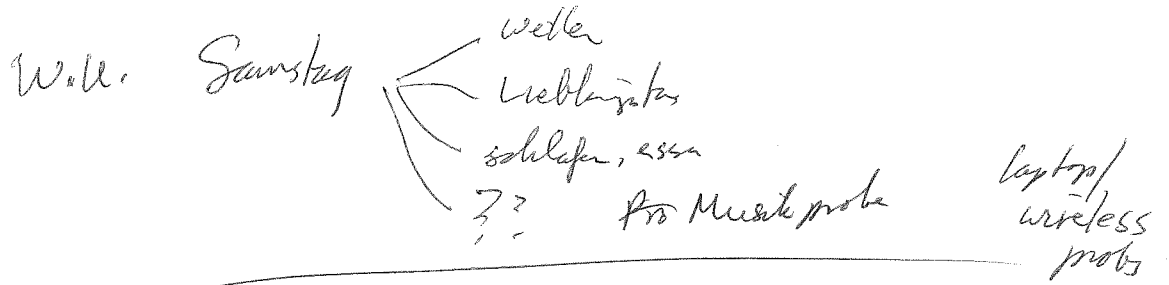 W.U. Samstag
Wetter
Lieblingstag
schlafen, essen
?? Pro Musik probe
laptop/
wireless
probs